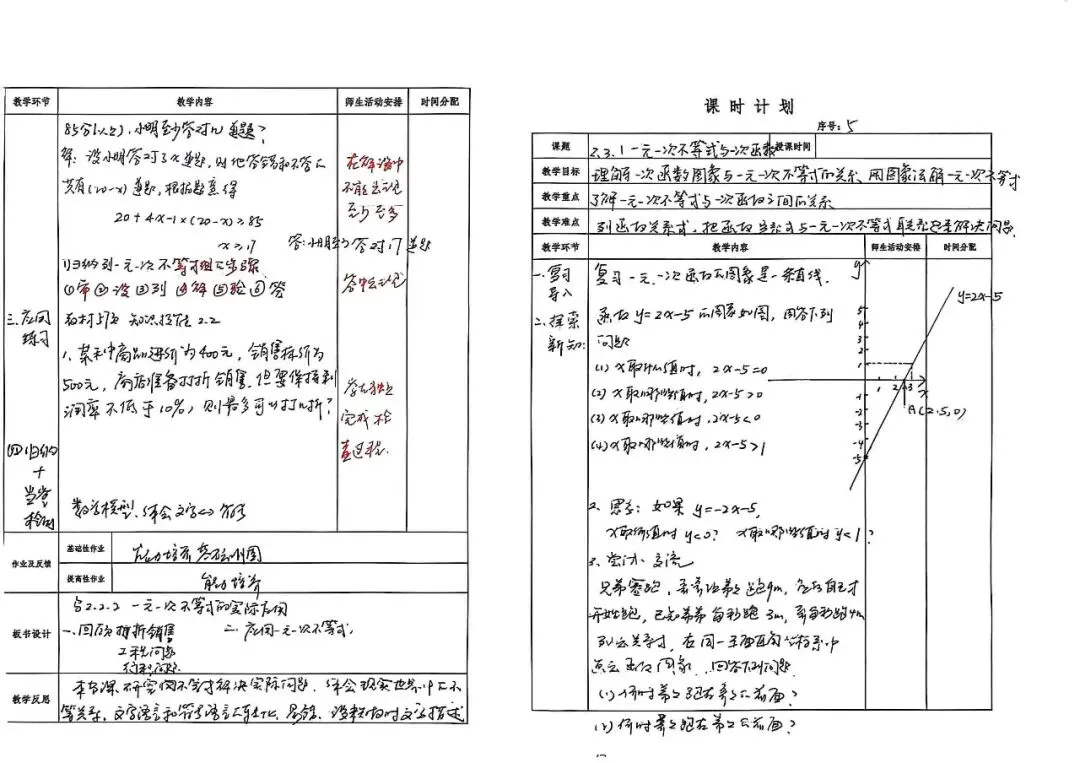 教学环节 教学内容 师生活动安排 时间分配
85分(以上), 小明至少答对几道题?
解: 设小明答对了x道题, 则他答错和不答的
共有(20-x)道题, 根据题意得
20+4x-1×(20-x)≥85
x≥17 答: 小明至少答对17道题
归纳列一元一次不等式组的步骤
①审②设③列④解⑤验⑥答
在解设中
不能出现
至少 至多
答中出现
三、应用
练习
教材 知识技能 2.2
1、某种商品进价为400元, 销售标价为
500元, 商店准备打折销售, 但要保持利
润率不低于10%, 则最多可以打几折?
学生独立
完成 检
查过程
(四)归纳
+
当堂
检测
数学模型、体会文字↔符号
作业及反馈
基础性作业 能力培养
提高性作业 能力培养
板书设计
§2.2.2 一元一次不等式的实际应用
一、回顾 打折销售 二、应用一元一次不等式
工程问题
行程问题
教学反思
本节课研究用不等式解决实际问题, 体会现实世界中的不
等关系, 文字语言和符号语言
课时计划
序号: 5
课题 2.3.1 一元一次不等式与一次函数 授课时间
教学目标 理解一次函数图象与一元一次不等式的关系、用图象法解一元一次不等式
教学重点 了解一元一次不等式与一次函数之间的关系
教学难点 列函数关系式, 把函数关系式与一元一次不等式联系起来解决问题
教学环节 教学内容 师生活动安排 时间分配
一、复习
导入
复习一元一次函数的图象是一条直线.
二、探索
新知:
函数y=2x-5的图象如图, 回答下列
问题
(1) x取什么值时, 2x-5=0
(2) x取哪些值时, 2x-5>0
(3) x取哪些值时, 2x-5<0
(4) x取哪些值时, 2x-5>1
y
y=2x-5
5
4
3
2
1
1 2 3 x
A(2.5,0)
-1
-2
-3
-4
-5
2、思考: 如果 y=-2x-5,
x取何值时 y<0? x取哪些值时 y<1?
3、尝试、交流
兄弟赛跑, 哥哥让弟弟先跑9m, 然后自己才
开始跑, 已知弟弟每秒跑3m, 哥每秒跑4m
列函数关系式, 在同一平面直角坐标系中
画出函数图象, 回答下列问题
(1) 何时弟弟跑在哥哥的前面?
(2) 何时哥哥跑在弟弟的前面?